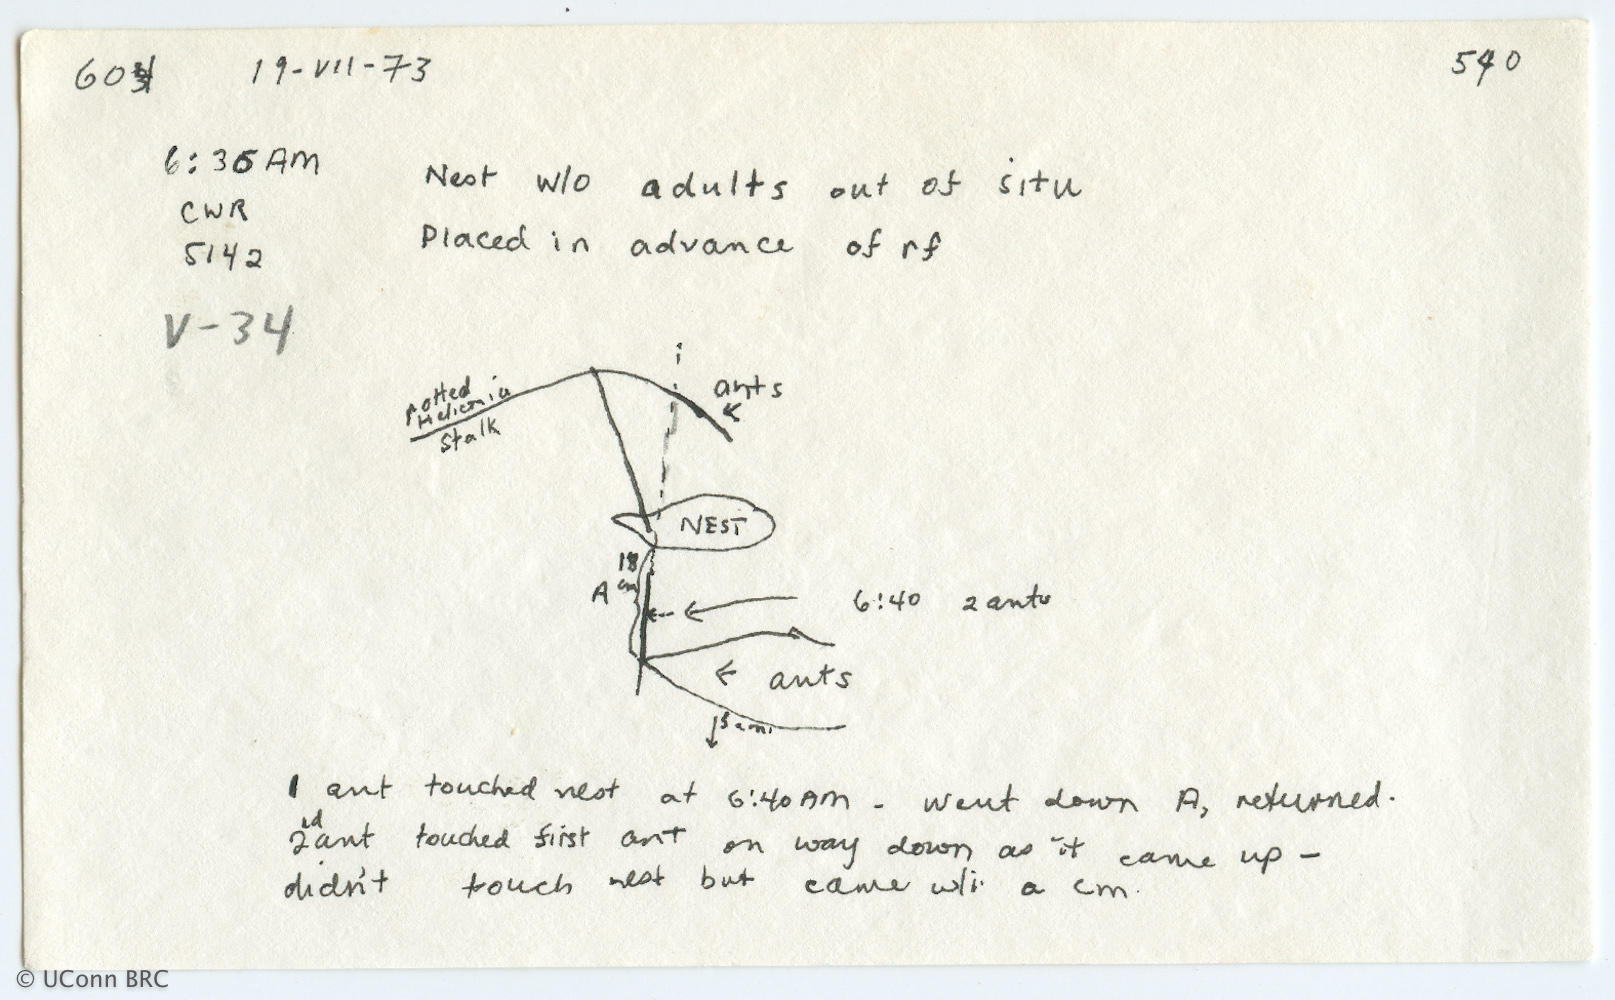 19-VII-73 540
6:35 AM
CWR
5142
V-34
Nest w/o adults out of situ
Placed in advance of rf
potted
Heliconia
stalk
ants
NEST
18
cm
A
6:40 2 ants
ants
1 ant touched nest at 6:40 AM - went down A, returned.
2nd ant touched first ant on way down as it came up -
didn't touch nest but came w/i a cm.
© UConn BRC